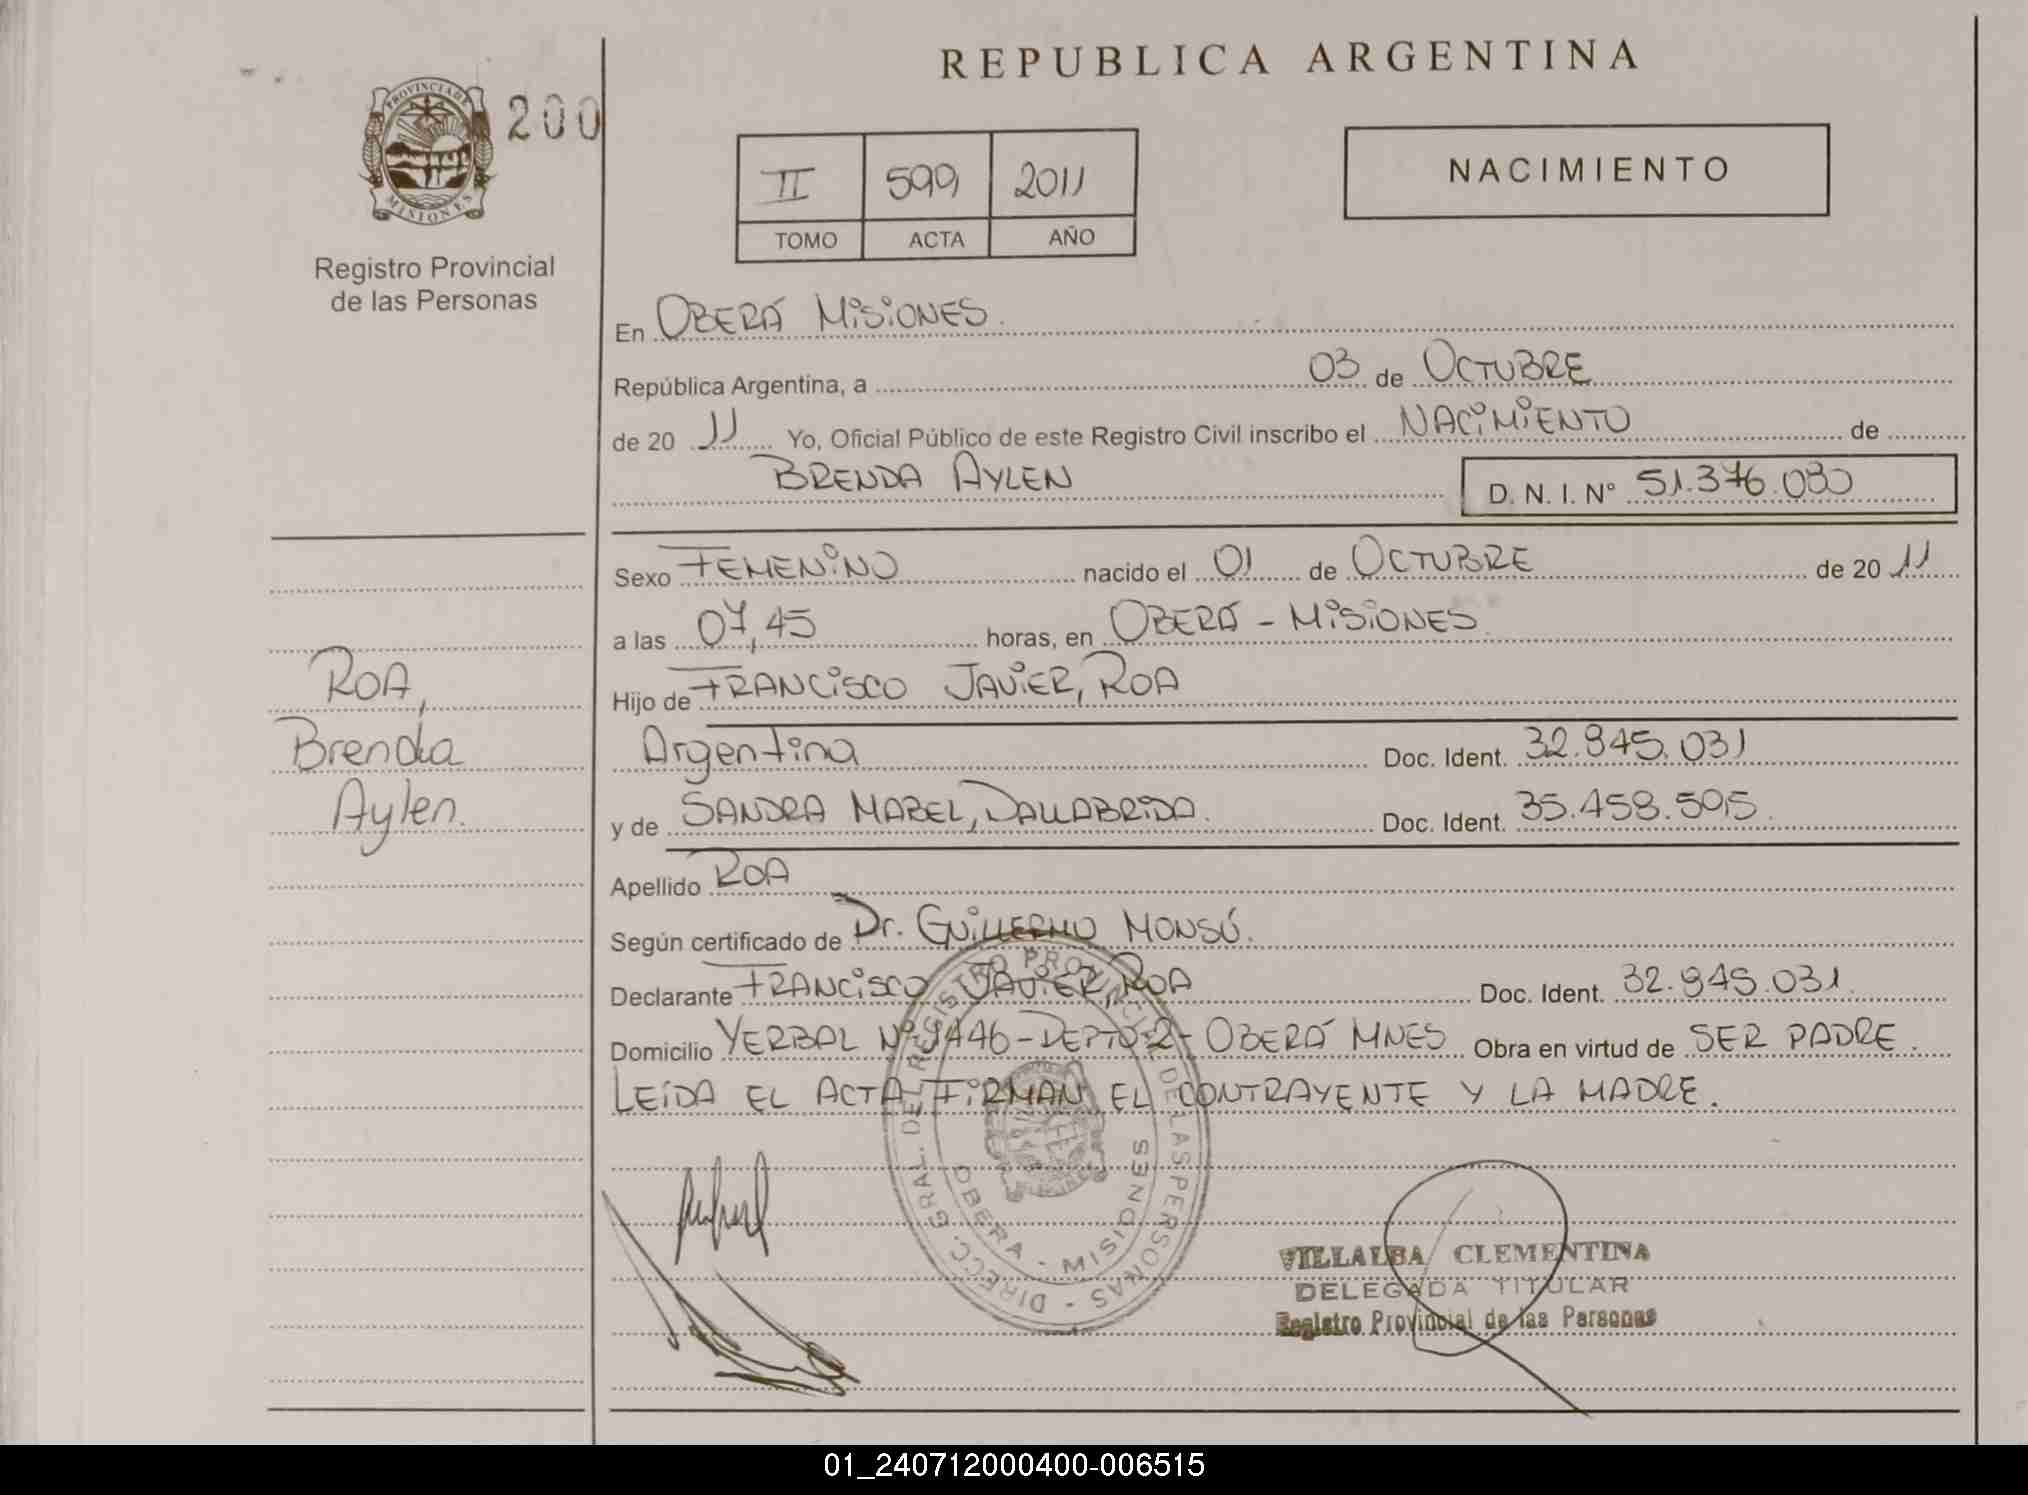 REPUBLICA ARGENTINA
PROVINCIA DE
MISIONES
200
Registro Provincial
de las Personas
II 599 2011
TOMO ACTA AÑO
NACIMIENTO
En OBERÁ MISIONES.
República Argentina, a 03 de OCTUBRE
de 20 11 Yo, Oficial Público de este Registro Civil inscribo el NACIMIENTO de
BRENDA AYLEN D. N. I. Nº 51.376.080
Sexo FEMENINO nacido el 01 de OCTUBRE de 20 11
a las 07,45 horas, en OBERÁ - MISIONES.
Hijo de FRANCISCO JAVIER, ROA
Argentina Doc. Ident. 32.945.031
y de SANDRA MABEL, DALLABRIDA. Doc. Ident. 35.458.505.
Apellido ROA
Según certificado de Dr. GUILLERMO MONSÚ.
Declarante FRANCISCO JAVIER, ROA Doc. Ident. 32.945.031.
Domicilio YERBAL Nº 9446 - DEPTO 2 - OBERÁ MNES Obra en virtud de SER PADRE.
LEIDA EL ACTA FIRMAN EL CONTRAYENTE Y LA MADRE.
ROA,
Brenda
Aylen.
DIRECC. GRAL. DEL REGISTRO PROVINCIAL DE LAS PERSONAS -
OBERA - MISIONES
VILLALBA CLEMENTINA
DELEGADA TITULAR
Registro Provincial de las Personas
01_240712000400-006515